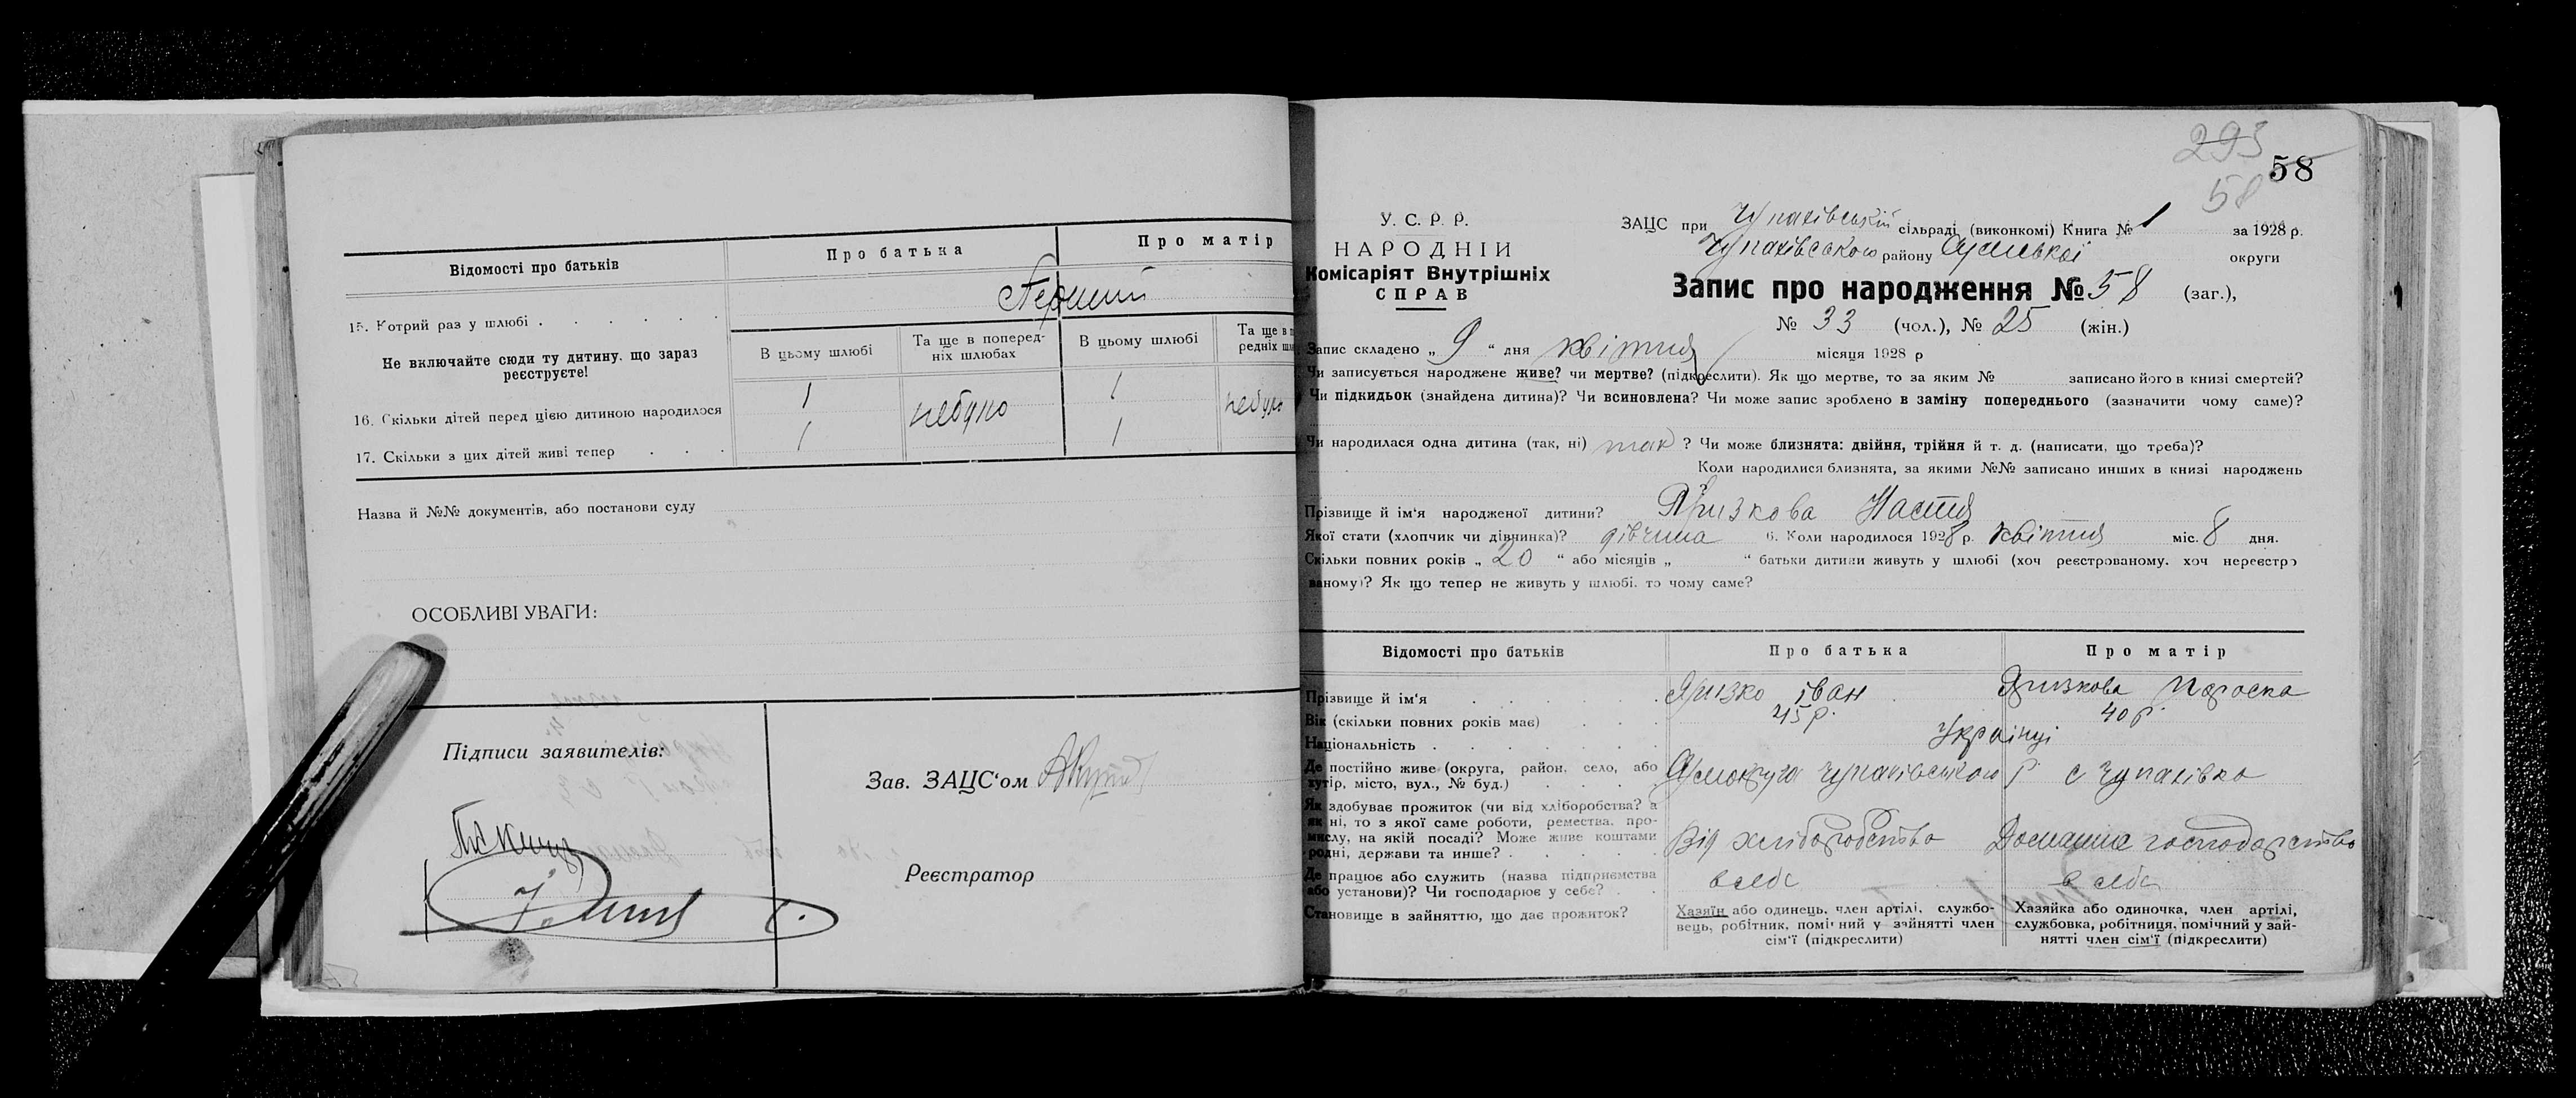 Відомості про батьків
Про батька
Про матір
15. Котрий раз у шлюбі
Перший
Не включайте сюди ту дитину, що зараз реєструєте!
В цьому шлюбі
Та ще в поперед-
ніх шлюбах
В цьому шлюбі
Та ще в п
редніх шл
16. Скільки дітей перед цією дитиною народилося
1 небуло 1 небуло
17. Скільки з цих дітей живі тепер
1 1
Назва й №№ документів, або постанови суду
ОСОБЛИВІ УВАГИ:
Підписи заявителів:
Зав. ЗАЦС‘ом
Реєстратор
293
58
58
У. С. Р. Р.
НАРОДНІЙ
Комісаріят Внутрішніх
СПРАВ
ЗАЦС при Чупахівській сільраді (виконкомі) Книга № 1 за 1928 р.
Чупахівського району Сумської округи
Запис про народження № 58 (заг.),
№ 33 (чол.), № 25 (жін.)
Запис складено „ 9 “ дня квітня місяця 1928 р
Чи записується народжене живе? чи мертве? (підкреслити). Як що мертве, то за яким № записано його в книзі смертей?
Чи підкидьок (знайдена дитина)? Чи всиновлена? Чи може запис зроблено в заміну попереднього (зазначити чому саме)?
Чи народилася одна дитина (так, ні) так ? Чи може близнята: двійня, трійня й т. д. (написати, що треба)?
Коли народилися близнята, за якими №№ записано инших в книзі народжень
Прізвище й ім‘я народженої дитини? Настя
Якої стати (хлопчик чи дівчинка)? дівчина 6. Коли народилося 1928 р. квітня міс. 8 дня.
Скільки повних років „ 20 “ або місяців „ “ батьки дитини живуть у шлюбі (хоч реєстрованому, хоч нереєстро
ваному)? Як що тепер не живуть у шлюбі, то чому саме?
Відомості про батьків
Про батька
Про матір
Прізвище й ім‘я
Іван
Вік (скільки повних років має)
45 р.
40 р.
Національність
Українці
Де постійно живе (округа, район, село, або
хутір, місто, вул., № буд.)
Чупахівського р с Чупахівка
Як здобуває прожиток (чи від хліборобства? а
як ні, то з якої саме роботи, ремества, про-
мислу, на якій посаді? Може живе коштами
родні, держави та инше?
Від хліборобства
Домашнє господарство
Де працює або служить (назва підприємства
або установи)? Чи господарює у себе?
в себе
в себе
Становище в зайняттю, що дає прожиток?
Хазяїн або одинець, член артілі, службо-
вець, робітник, помічний у зайнятті член
сім‘ї (підкреслити)
Хазяйка або одиночка, член артілі,
службовка, робітниця, помічний у зай-
нятті член сім‘ї (підкреслити)